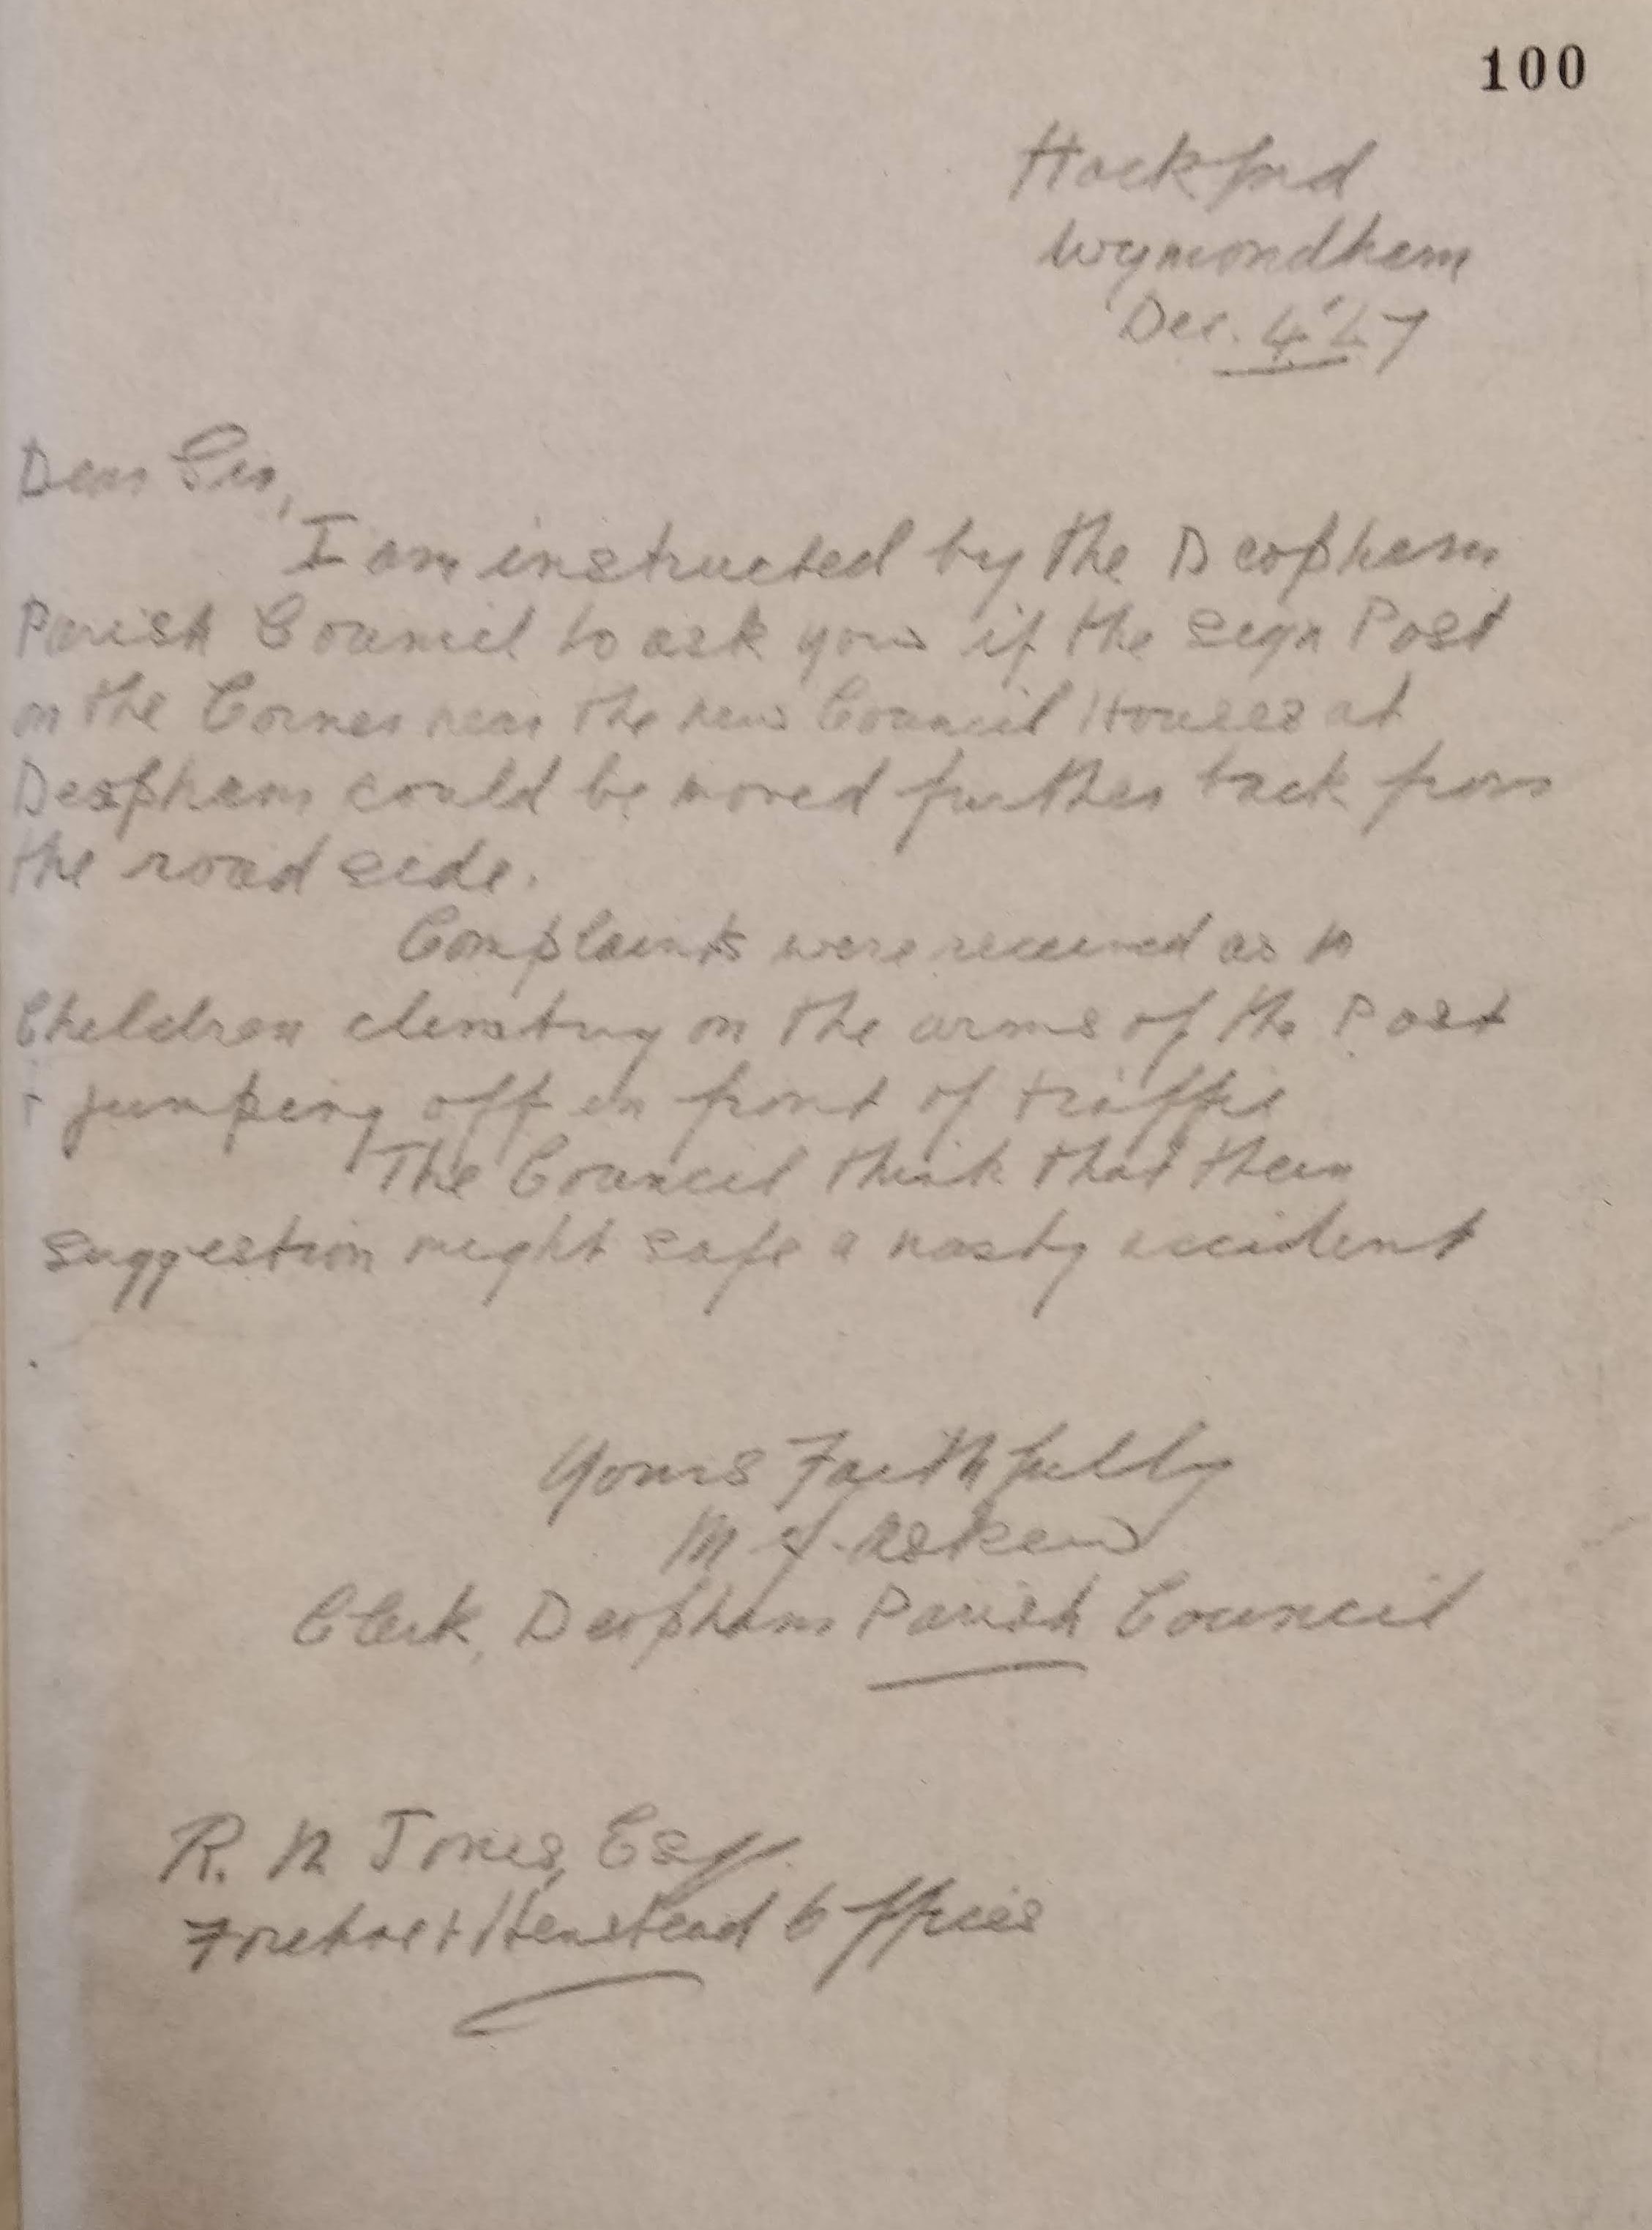 100
Hackford
Wymondham
Dec. 4' 47
Dear Sir,
I am instructed by the Deopham
Parish Council to ask you if the Sign Post
on the Corner near the new Council Houses at
Deopham could be moved further back from
the road side.
Complaints were received as to
Children climbing on the arms of the Post
+ jumping off in front of traffic
The Council think that their
suggestion might safe a nasty accident
Yours Faithfully
M J. Askew
Clerk, Deopham Parish Council
R. N Jones, Esq.
Forehoe + Henstead Offices